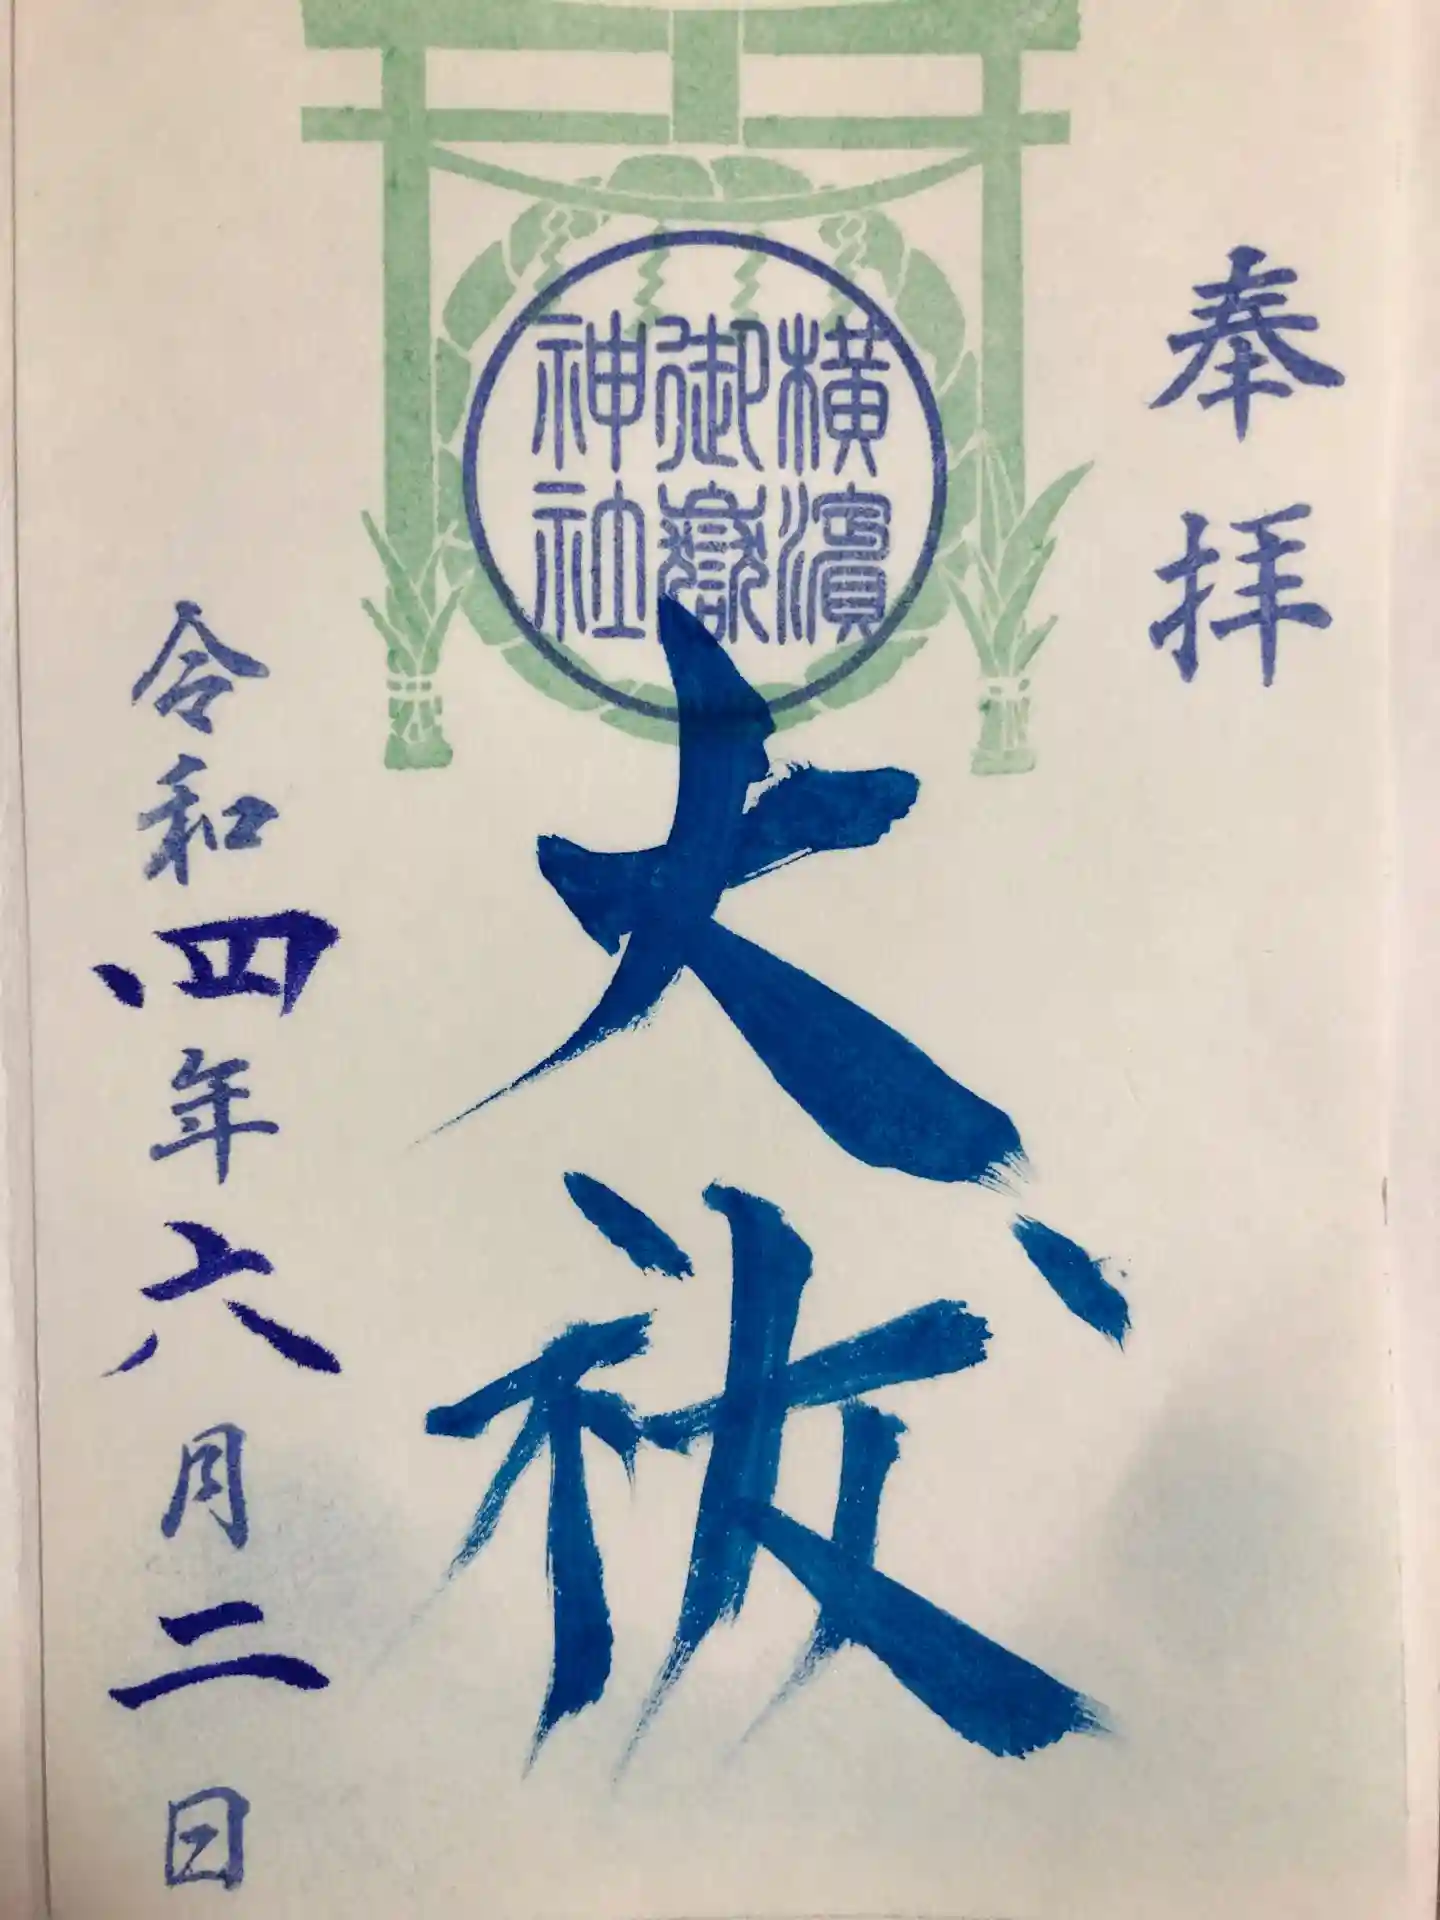 奉拝
横濱
御嶽
神社
大祓
令和四年六月二日